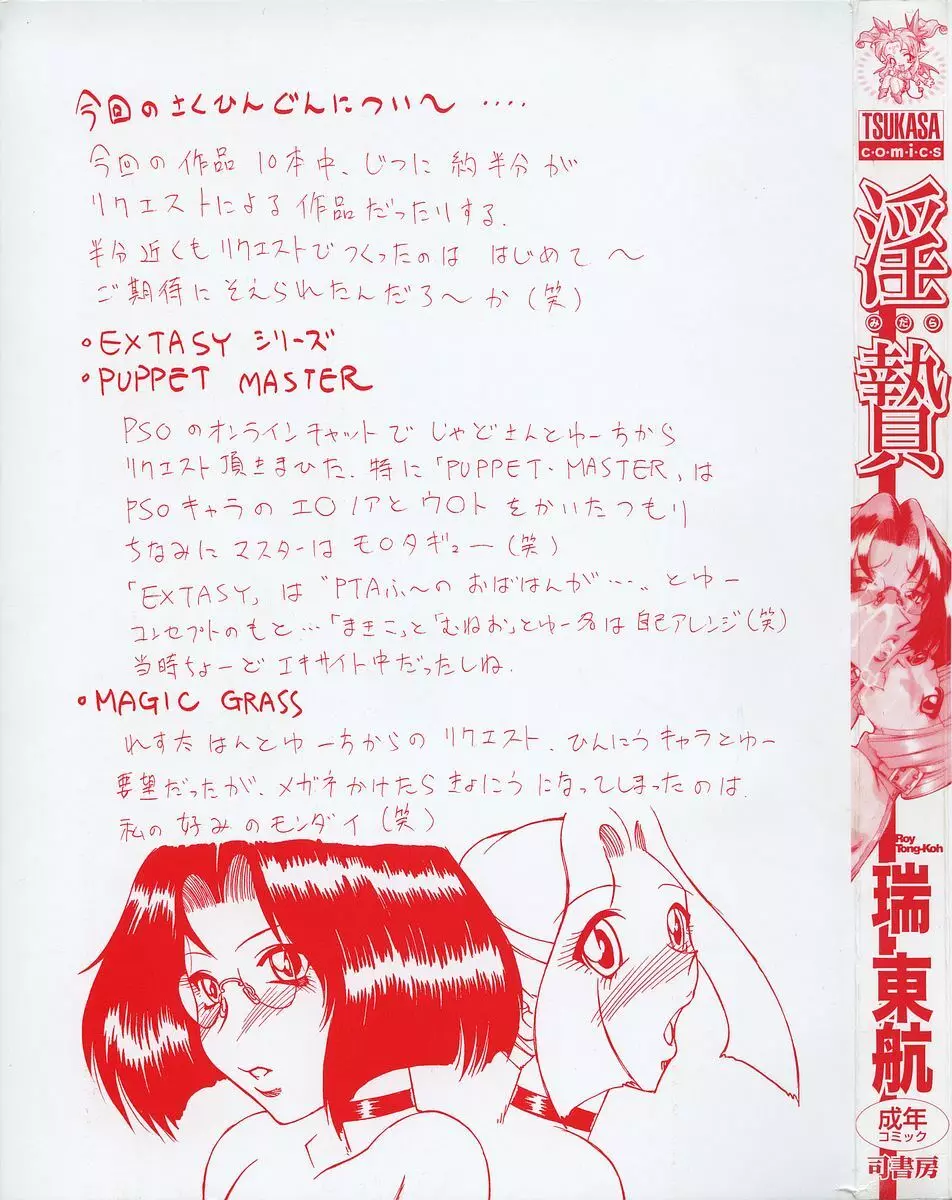 今回のさくひんぐんについて ‥‥
今回の作品10本中、じつに約半分が
リクエストによる作品だったりする.
半分近くもリクエストでつくったのは はじめて〜
ご期待にそえられたんだろ〜か(笑)
・EXTASY シリーズ
・PUPPET MASTER
PSOのオンラインチャットで じゃどさんとゆーちから
リクエスト頂きまひた. 特に「PUPPET・MASTER」は
PSOキャラの エ○ノアと ウ○ト をかいたつもり
ちなみに マスターは モ○タギュー(笑)
「EXTASY」は "PTAふ〜の おばはんが…" とゆー
コンセプトのもと…「まきこ」と「むねお」とゆー名は自己アレンジ(笑)
当時ちょーど エキサイト中だったしね.
・MAGIC GRASS
れすた はんとゆーちからの リクエスト. ひんにうキャラとゆー
要望だったが、メガネかけたら きょにうになってしまったのは.
私の好みのモンダイ (笑)
TSUKASA
c・o・m・i・c・s
淫贄
みだら
Roy
Tong-Koh
瑞東航
成年
コミック
司書房